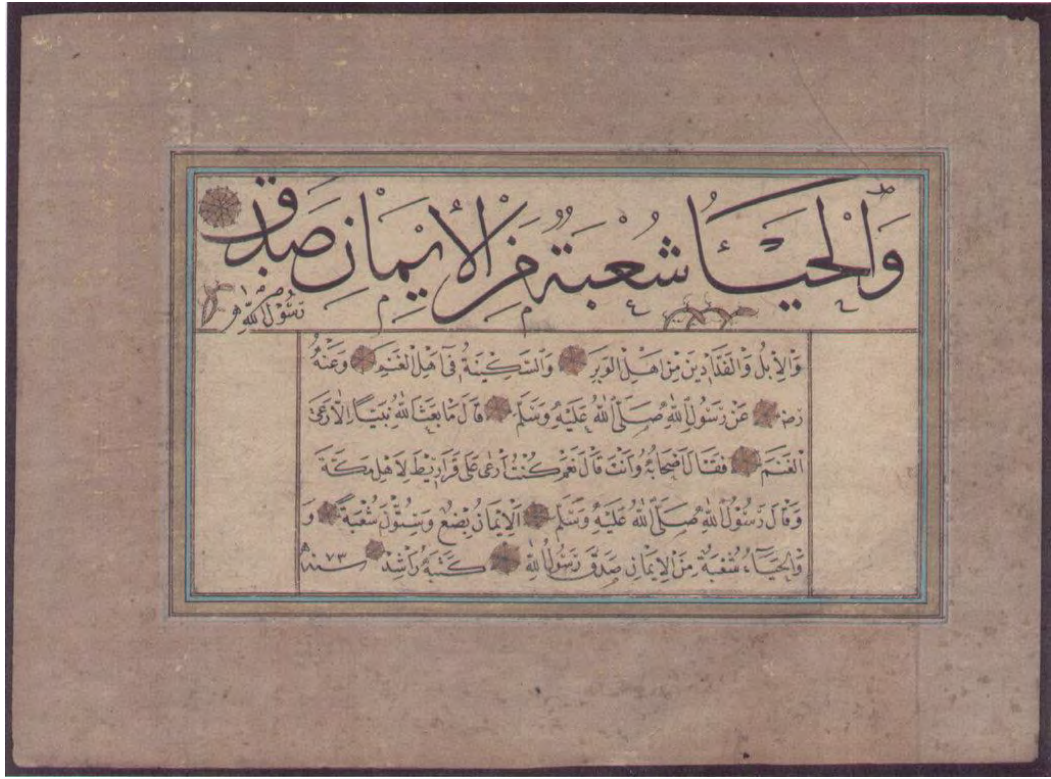 وَالْحَيَاءُ شُعْبَةٌ مِنَ الْإِيْمَانِ صَدَقَ
رَسُولُ اللّٰهِ
وَالْاِبُلِ وَالْفَدَّادِينَ مِنْ اَهْلِ الْوَبَرِ وَالسَّكِينَةُ فِى اَهْلِ الْغَنَمِ وَعَنْهُ
رض عَنْ رَسُولِ اللّٰهِ صَلَّى اللّٰهُ عَلَيْهِ وَسَلَّمَ قَالَ مَا بَعَثَ اللّٰهُ نَبِيًّا اِلَّا رَعَى
الْغَنَمَ فَقَالَ اَصْحَابُهُ وَاَنْتَ قَالَ نَعَمْ كُنْتُ اَرْعَى عَلَى قَرَارِيطَ لِاَهْلِ مَكَّةَ
وَقَالَ رَسُولُ اللّٰهِ صَلَّى اللّٰهُ عَلَيْهِ وَسَلَّمَ اَلْاِيمَانُ بِضْعٌ وَسِتُّونَ شُعْبَةً وَ
وَالْحَيَاءُ شُعْبَةٌ مِنَ الْاِيمَانِ صَدَقَ رَسُولُ اللّٰهِ كَتَبَهُ رَاشِدْ سنه ٧٣